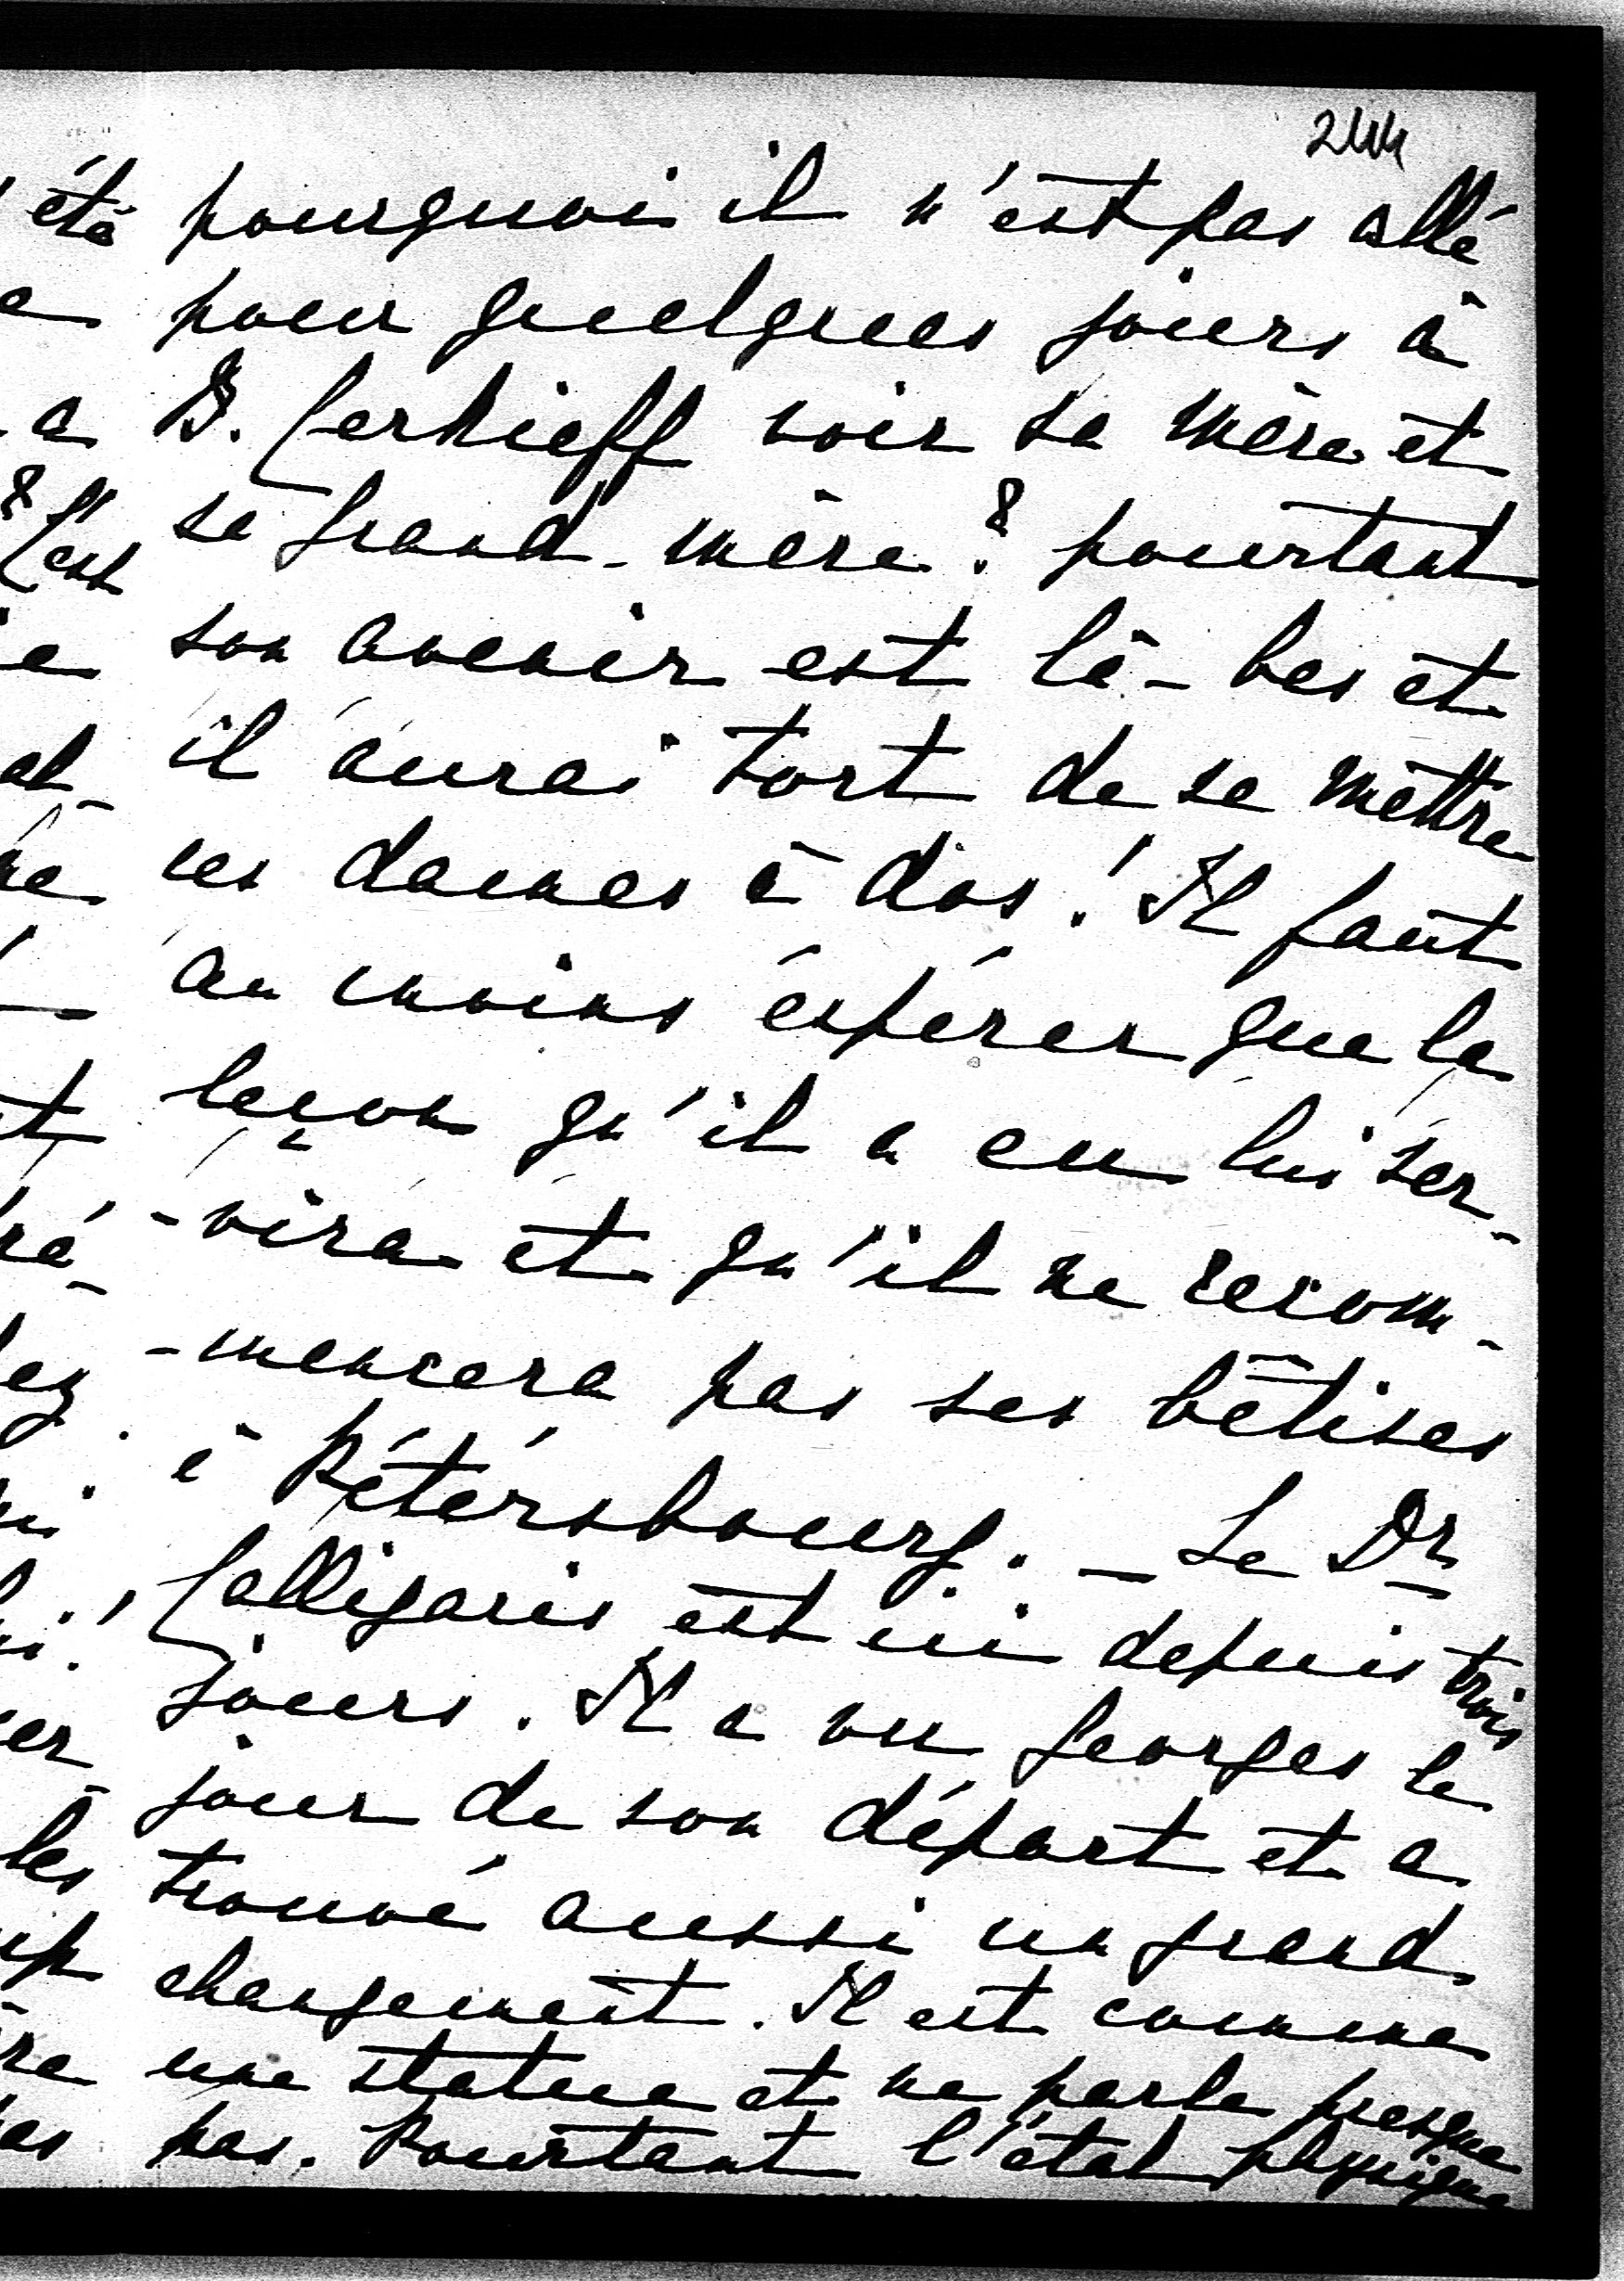 244
pourquoi il n'est pas allé
pour quelques jours à
B. Cerkieff voir sa mère et
sa grand-mère? pourtant
son avenir est là-bas et
il aurai tort de se mettre
ces dames à dos! Il faut
au moins espérer que la
leçon qu'il a eu lui ser-
-vira et qu'il ne recom-
-mencera pas ses bêtises
à Pétersbourg. — Le Dr
Calligaris est ici depuis trois
jours. Il a vu Georges le
jour de son départ et a
trouvé aussi un grand
changement. Il est comme
une statue et ne parle presque
pas. Pourtant l'état physique